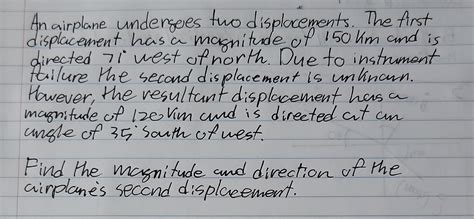 An airplane undergoes two displacements. The first
displacement has a magnitude of 150 km and is
directed 71° west of north. Due to instrument
failure the second displacement is unknown.
However, the resultant displacement has a
magnitude of 120 km and is directed at an
angle of 35° South of west.
Find the magnitude and direction of the
airplane's second displacement.